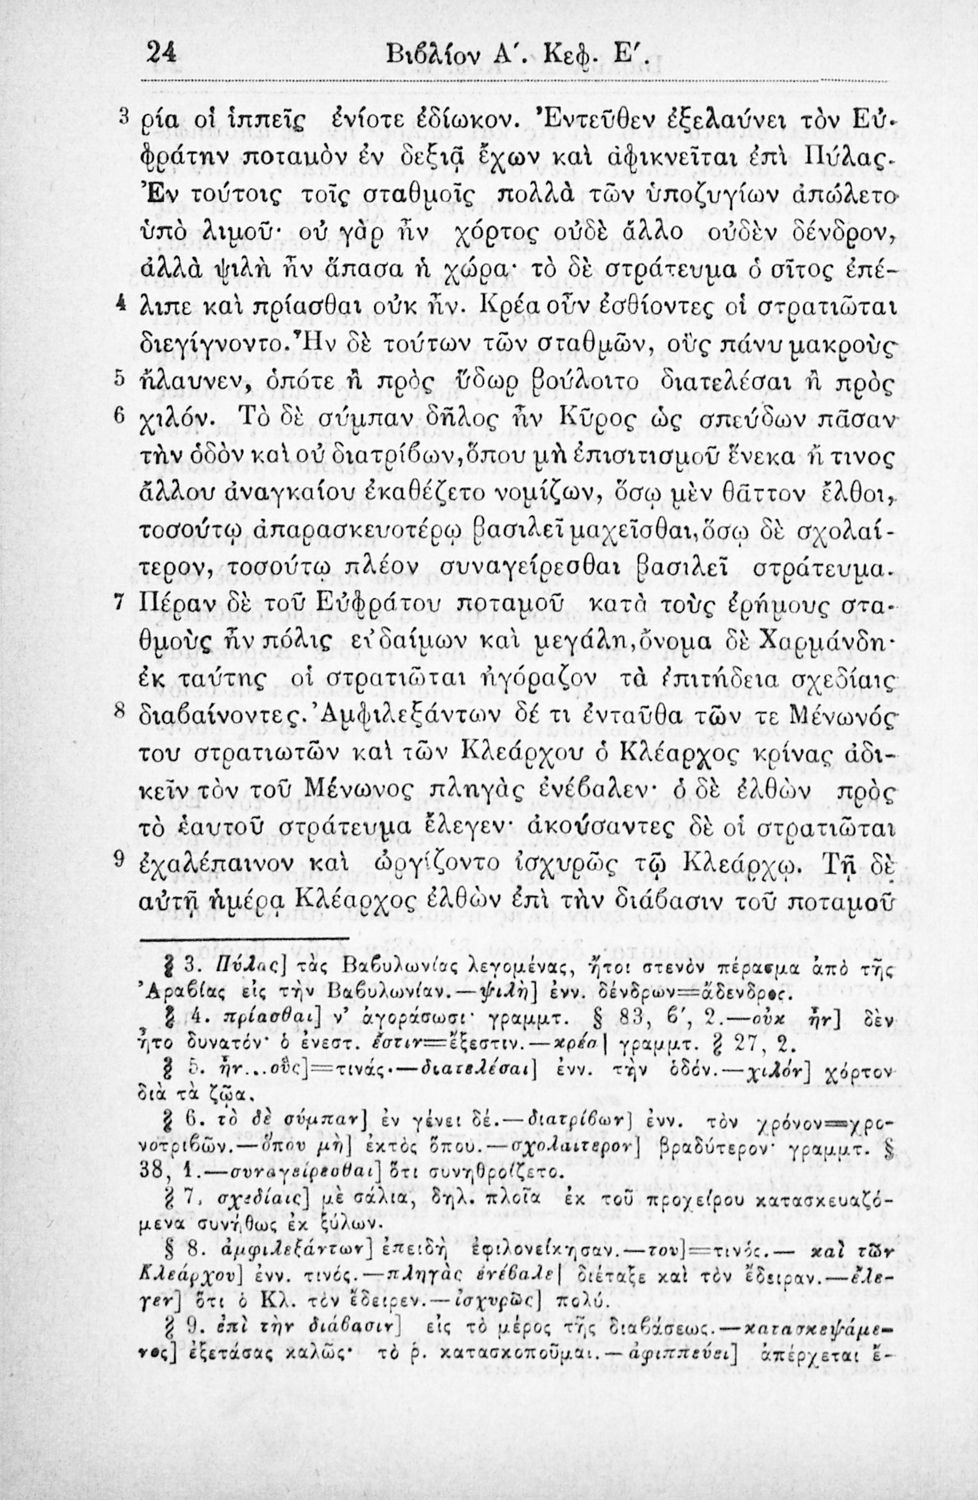 24 Βιβλίον Α΄. Κεφ. Ε΄.
3 ρία οἱ ἱππεῖς ἐνίοτε ἐδίωκον. Ἐντεῦθεν ἐξελαύνει τὸν Εὐ-
φράτην ποταμὸν ἐν δεξιᾷ ἔχων καὶ ἀφικνεῖται ἐπὶ Πύλας.
Ἐν τούτοις τοῖς σταθμοῖς πολλὰ τῶν ὑποζυγίων ἀπώλετο
ὑπὸ λιμοῦ· οὐ γὰρ ἦν χόρτος οὐδὲ ἄλλο οὐδὲν δένδρον,
ἀλλὰ ψιλὴ ἦν ἅπασα ἡ χώρα· τὸ δὲ στράτευμα ὁ σῖτος ἐπέ-
4 λιπε καὶ πρίασθαι οὐκ ἦν. Κρέα οὖν ἐσθίοντες οἱ στρατιῶται
διεγίγνοντο. Ἦν δὲ τούτων τῶν σταθμῶν, οὓς πάνυ μακροὺς
5 ἤλαυνεν, ὁπότε ἢ πρὸς ὕδωρ βούλοιτο διατελέσαι ἢ πρὸς
6 χιλόν. Τὸ δὲ σύμπαν δῆλος ἦν Κῦρος ὡς σπεύδων πᾶσαν
τὴν ὁδὸν καὶ οὐ διατρίβων, ὅπου μὴ ἐπισιτισμοῦ ἕνεκα ἤ τινος
ἄλλου ἀναγκαίου ἐκαθέζετο νομίζων, ὅσῳ μὲν θᾶττον ἔλθοι,
τοσούτῳ ἀπαρασκευοτέρῳ βασιλεῖ μαχεῖσθαι, ὅσῳ δὲ σχολαί-
τερον, τοσούτῳ πλέον συναγείρεσθαι βασιλεῖ στράτευμα.
7 Πέραν δὲ τοῦ Εὐφράτου ποταμοῦ κατὰ τοὺς ἐρήμους στα-
θμοὺς ἦν πόλις εὐδαίμων καὶ μεγάλη, ὄνομα δὲ Χαρμάνδη·
ἐκ ταύτης οἱ στρατιῶται ἠγόραζον τὰ ἐπιτήδεια σχεδίαις
8 διαβαίνοντες. Ἀμφιλεξάντων δέ τι ἐνταῦθα τῶν τε Μένωνός
του στρατιωτῶν καὶ τῶν Κλεάρχου ὁ Κλέαρχος κρίνας ἀδι-
κεῖν τὸν τοῦ Μένωνος πληγὰς ἐνέβαλεν· ὁ δὲ ἐλθὼν πρὸς
τὸ ἑαυτοῦ στράτευμα ἔλεγεν· ἀκούσαντες δὲ οἱ στρατιῶται
9 ἐχαλέπαινον καὶ ὠργίζοντο ἰσχυρῶς τῷ Κλεάρχῳ. Τῇ δὲ
αὐτῇ ἡμέρᾳ Κλέαρχος ἐλθὼν ἐπὶ τὴν διάβασιν τοῦ ποταμοῦ
§ 3. Πύλας] τὰς Βαβυλωνίας λεγομένας, ἤτοι στενὸν πέρασμα ἀπὸ τῆς
Ἀραβίας εἰς τὴν Βαβυλωνίαν.—ψιλὴ] ἐνν. δένδρων=ἄδενδρος.
§ 4. πρίασθαι] ν' ἀγοράσωσι· γραμμτ. § 83, 6΄, 2.—οὐκ ἦν] δὲν
ἦτο δυνατόν· ὁ ἐνεστ. ἔστιν=ἔξεστιν.—κρέα] γραμμτ. § 27, 2.
§ 5. ἦν...οὓς]=τινάς.—διατελέσαι] ἐνν. τὴν ὁδόν.—χιλόν] χόρτον
διὰ τὰ ζῷα.
§ 6. τὸ δὲ σύμπαν] ἐν γένει δέ.—διατρίβων] ἐνν. τὸν χρόνον=χρο-
νοτριβῶν.—ὅπου μὴ] ἐκτὸς ὅπου.—σχολαίτερον] βραδύτερον· γραμμτ. §
38, 1.—συναγείρεσθαι] ὅτι συνηθροίζετο.
§ 7. σχεδίαις] μὲ σάλια, δηλ. πλοῖα ἐκ τοῦ προχείρου κατασκευαζό-
μενα συνήθως ἐκ ξύλων.
§ 8. ἀμφιλεξάντων] ἐπειδὴ ἐφιλονείκησαν.—του]=τινός.— καὶ τῶν
Κλεάρχου] ἐνν. τινός.—πληγὰς ἐνέβαλε] διέταξε καὶ τὸν ἔδειραν.—ἔλε-
γεν] ὅτι ὁ Κλ. τὸν ἔδειρεν.—ἰσχυρῶς] πολύ.
§ 9. ἐπὶ τὴν διάβασιν] εἰς τὸ μέρος τῆς διαβάσεως.—κατασκεψάμε-
νος] ἐξετάσας καλῶς· τὸ ῥ. κατασκοποῦμαι.—ἀφιππεύει] ἀπέρχεται ἔ-